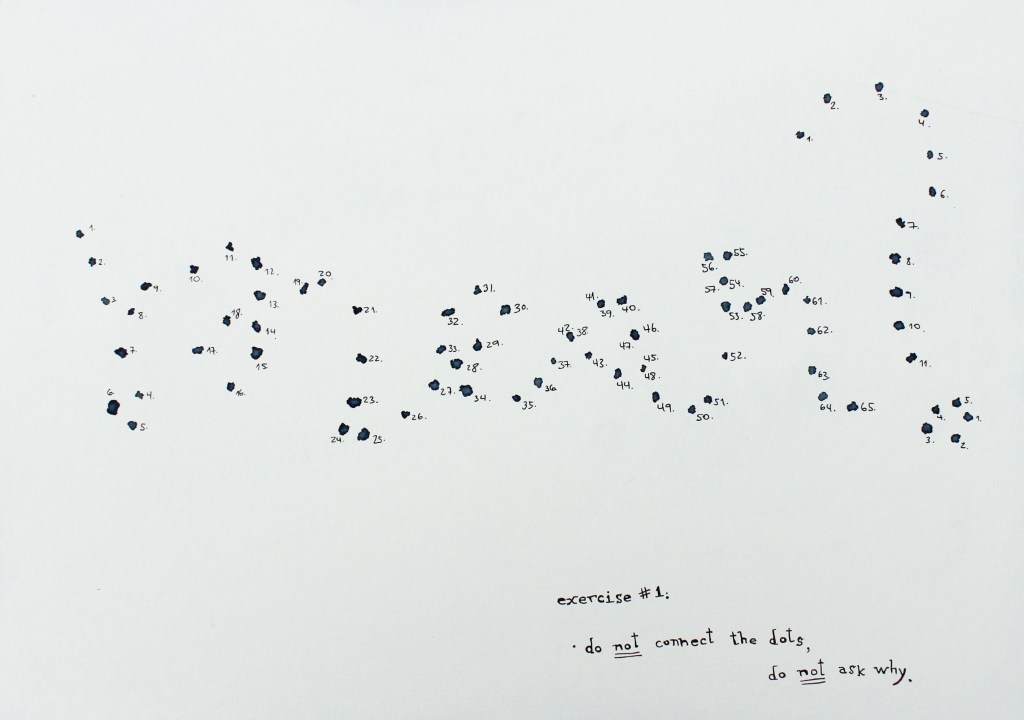 exercise #1:
· do not connect the dots,
do not ask why.
1. 2. 3. 4. 5. 6. 7. 8. 9. 10. 11. 12. 13. 14. 15. 16. 17. 18. 19. 20. 21. 22. 23. 24. 25. 26. 27. 28. 29. 30. 31. 32. 33. 34. 35. 36. 37. 38. 39. 40. 41. 42. 43. 44. 45. 46. 47. 48. 49. 50. 51. 52. 53. 54. 55. 56. 57. 58. 59. 60. 61. 62. 63. 64. 65.
1. 2. 3. 4. 5. 6. 7. 8. 9. 10. 11.
1. 2. 3. 4. 5.